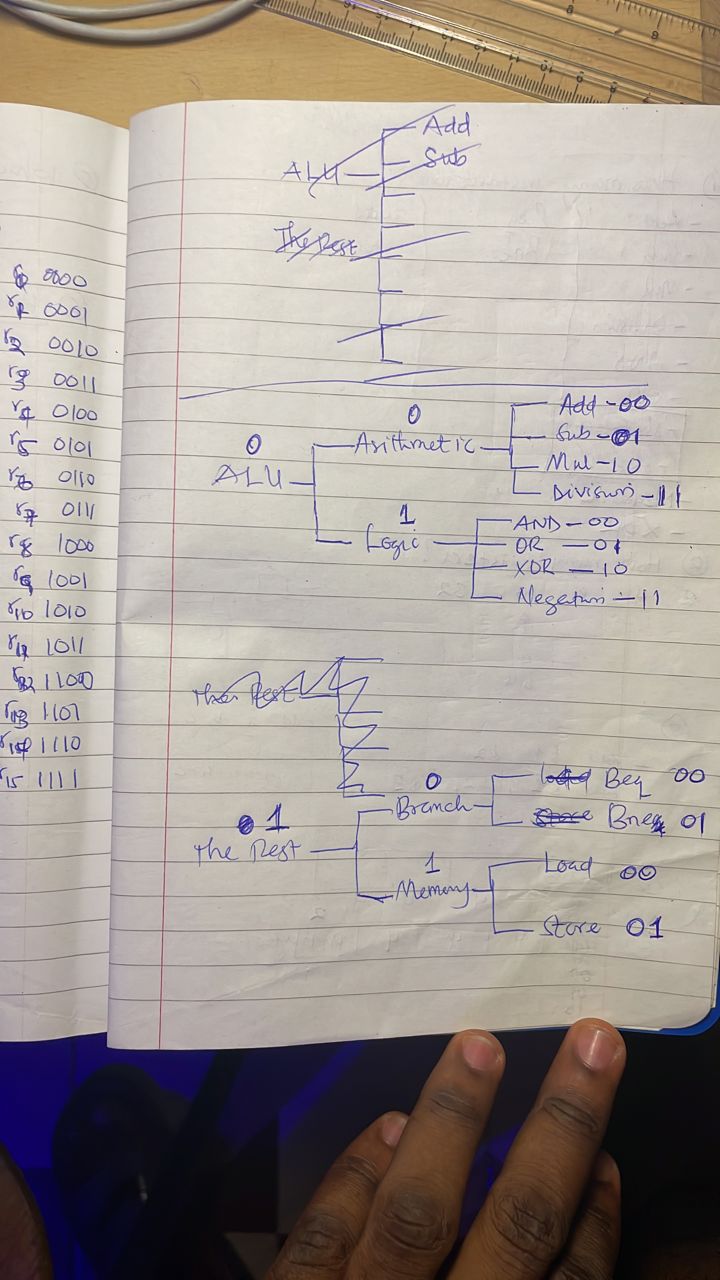 r0 0000
r1 0001
r2 0010
r3 0011
r4 0100
r5 0101
r6 0110
r7 0111
r8 1000
r9 1001
r10 1010
r11 1011
r12 1100
r13 1101
r14 1110
r15 1111
Add
ALU
Sub
The Rest
0
0
Add - 00
ALU
Arithmetic
Sub - 01
Mul - 10
Division - 11
1
Logic
AND - 00
OR - 01
XOR - 10
Negation - 11
The Rest
0
Beq 00
1
Branch
Bneq 01
The Rest
1
Load 00
Memory
Store 01